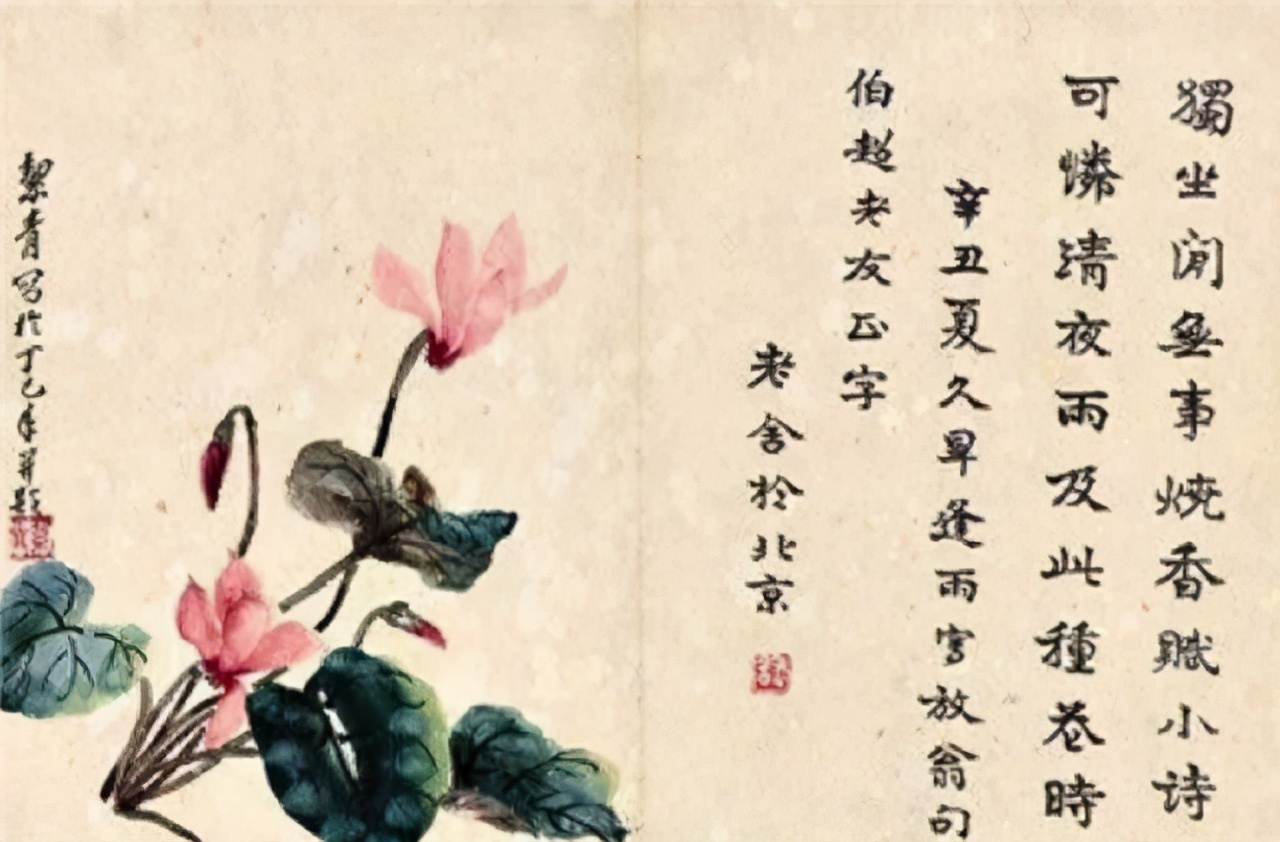 獨坐閒無事燒香賦小诗
可憐清夜雨及此種花時
辛丑夏久旱逢雨寫放翁句
伯超老友正字
老舍於北京
絜青写於丁巳年并題